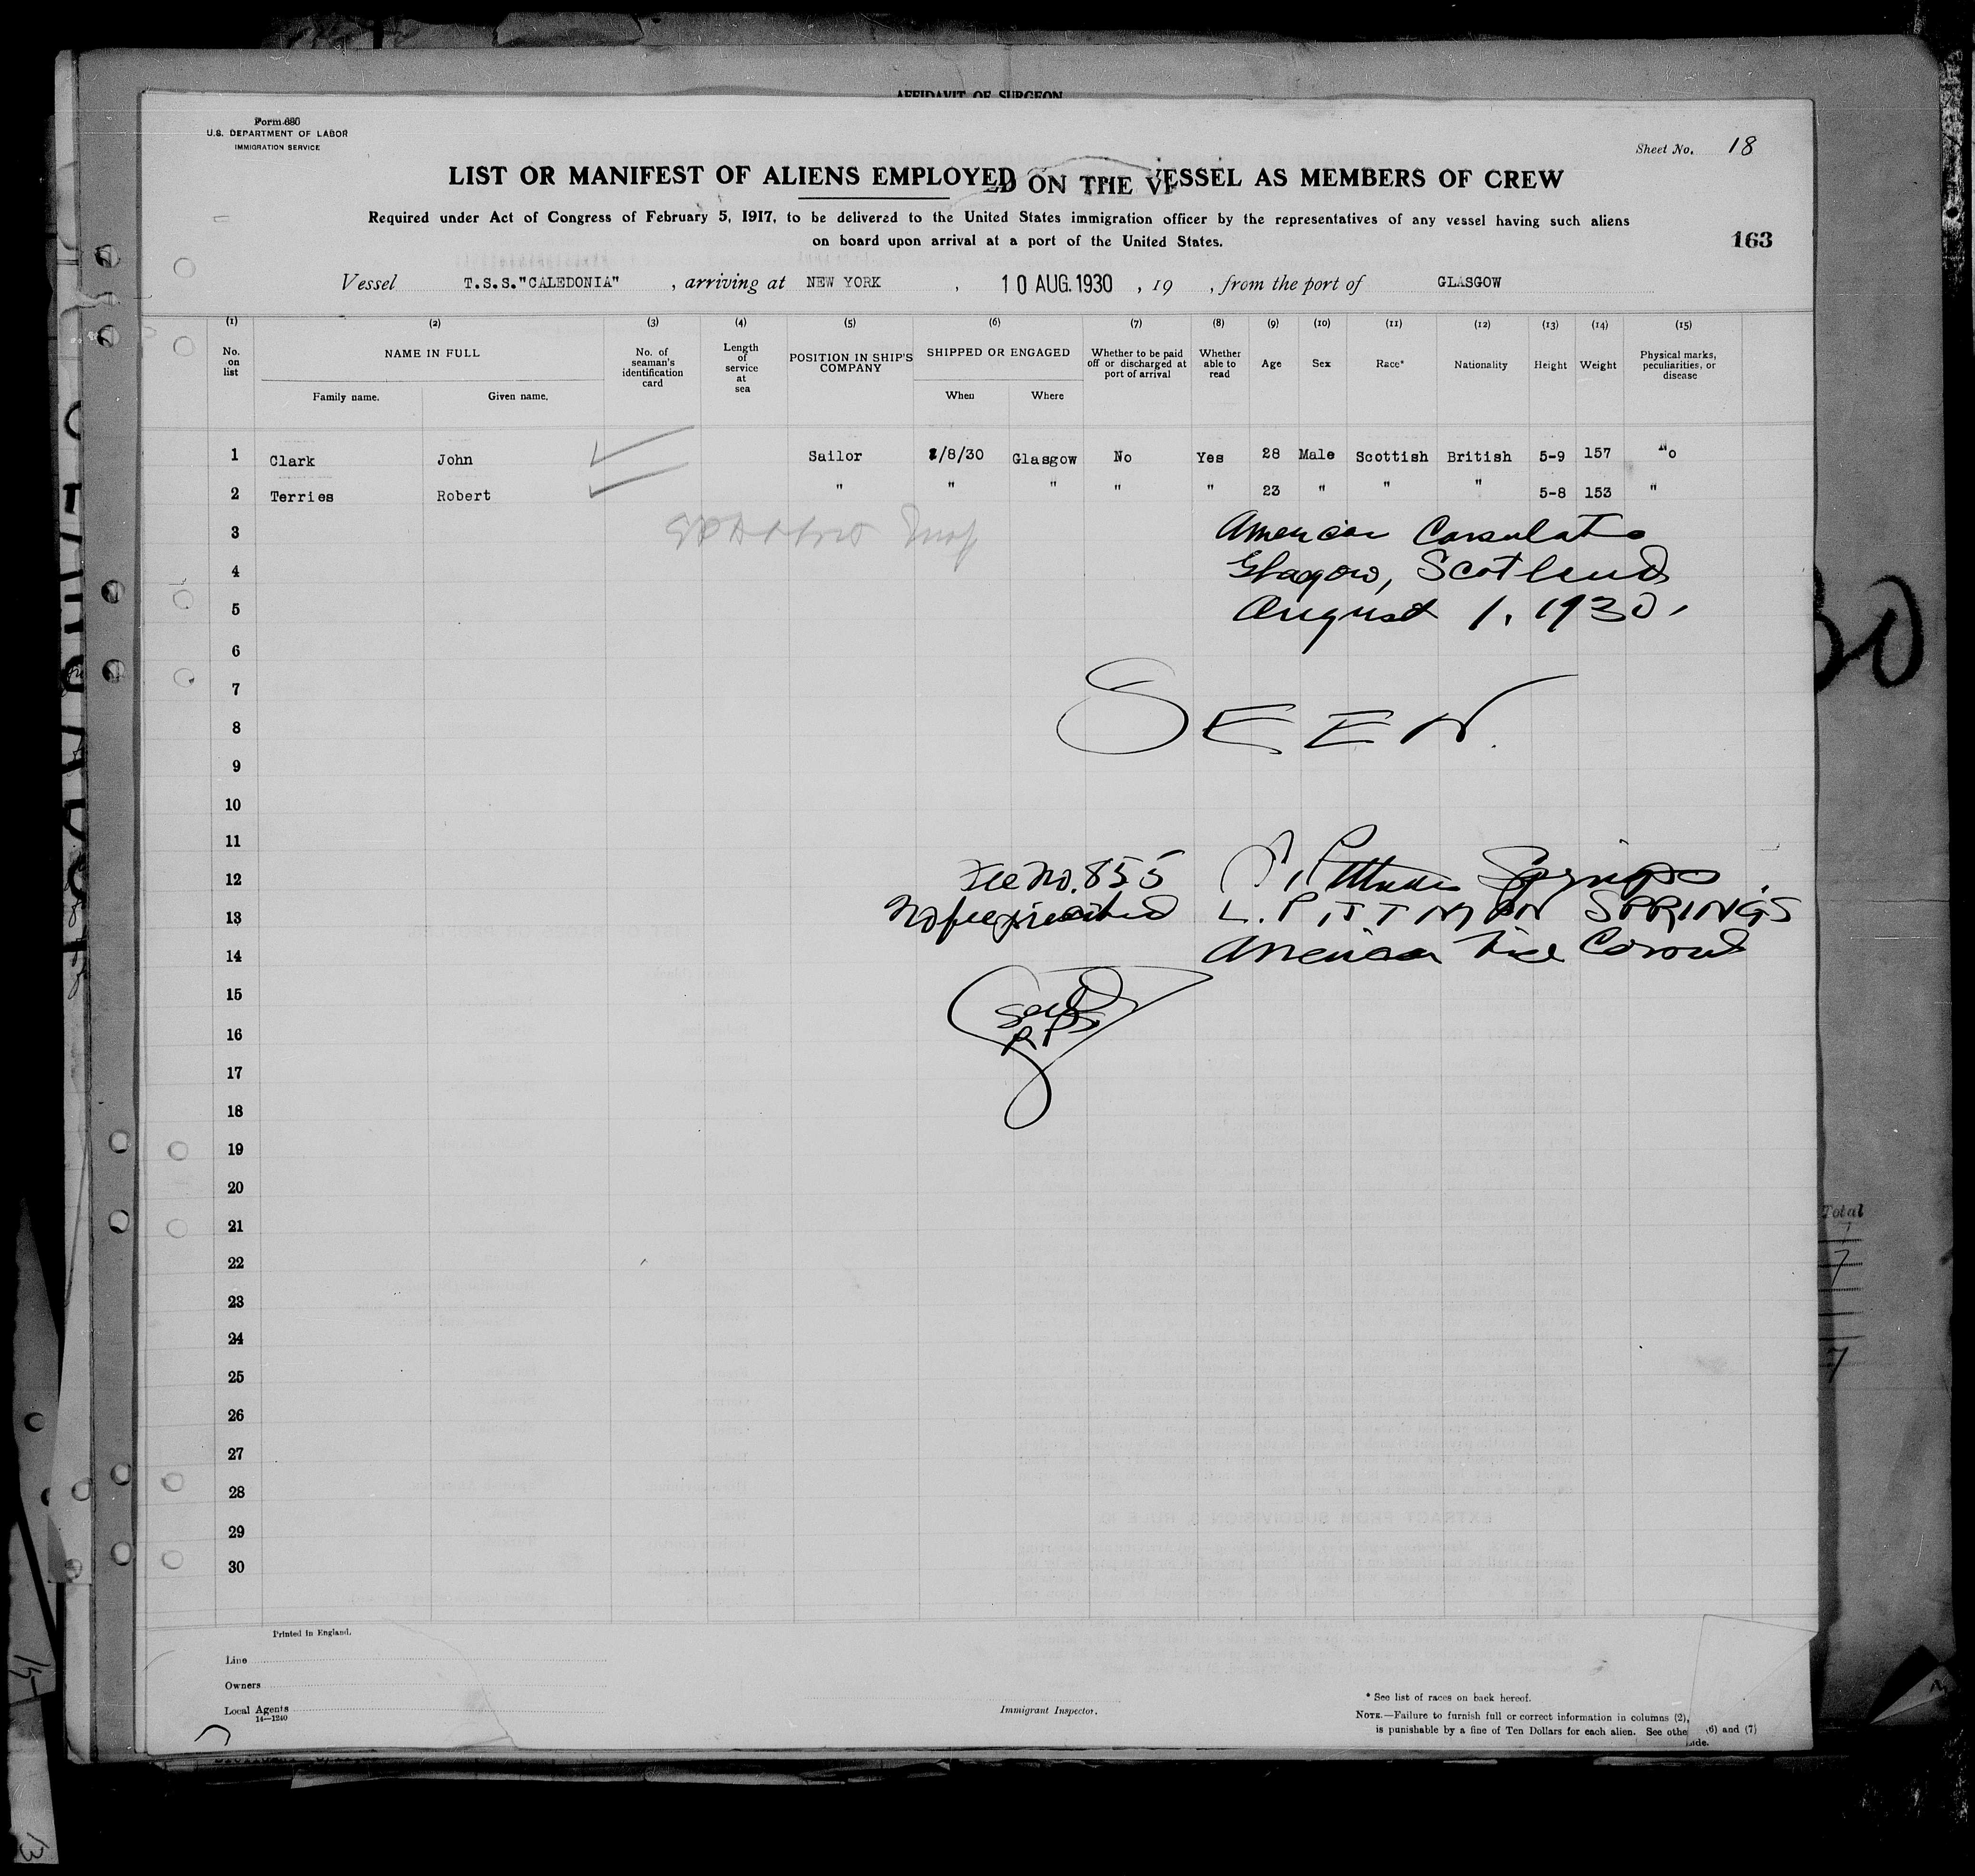 AFFIDAVIT OF SURGEON
Form 680
U.S. DEPARTMENT OF LABOR
IMMIGRATION SERVICE
Sheet No. 18
LIST OR MANIFEST OF ALIENS EMPLOYED ON THE VESSEL AS MEMBERS OF CREW
Required under Act of Congress of February 5, 1917, to be delivered to the United States immigration officer by the representatives of any vessel having such aliens
on board upon arrival at a port of the United States.
163
Vessel T.S.S."CALEDONIA" , arriving at NEW YORK , 10 AUG. 1930 , 19 , from the port of GLASGOW
(1) (2) (3) (4) (5) (6) (7) (8) (9) (10) (11) (12) (13) (14) (15)
No. on list NAME IN FULL No. of seaman's identification card Length of service at sea POSITION IN SHIP'S COMPANY SHIPPED OR ENGAGED Whether to be paid off or discharged at port of arrival Whether able to read Age Sex Race* Nationality Height Weight Physical marks, peculiarities, or disease
Family name. Given name. When Where
1 Clark John Sailor 1/8/30 Glasgow No Yes 28 Male Scottish British 5-9 157 No
2 Terries Robert " " " " " 23 " " " 5-8 153 "
3 American Consulate
4 Glasgow, Scotland
5 August 1, 1930.
6
7
8 SEEN.
9
10
11
12 Fee No. 855 L. Pittman Springs
13 No fee prescribed L. PITTMAN SPRINGS
14 American Vice Consul
15
16
17
18
19
20
21
22
23
24
25
26
27
28
29
30
Printed in England.
Line
Owners
Local Agents
14—1240
Immigrant Inspector.
* See list of races on back hereof.
NOTE.—Failure to furnish full or correct information in columns (2), (6) and (7)
is punishable by a fine of Ten Dollars for each alien. See othe side.
Total
7
7